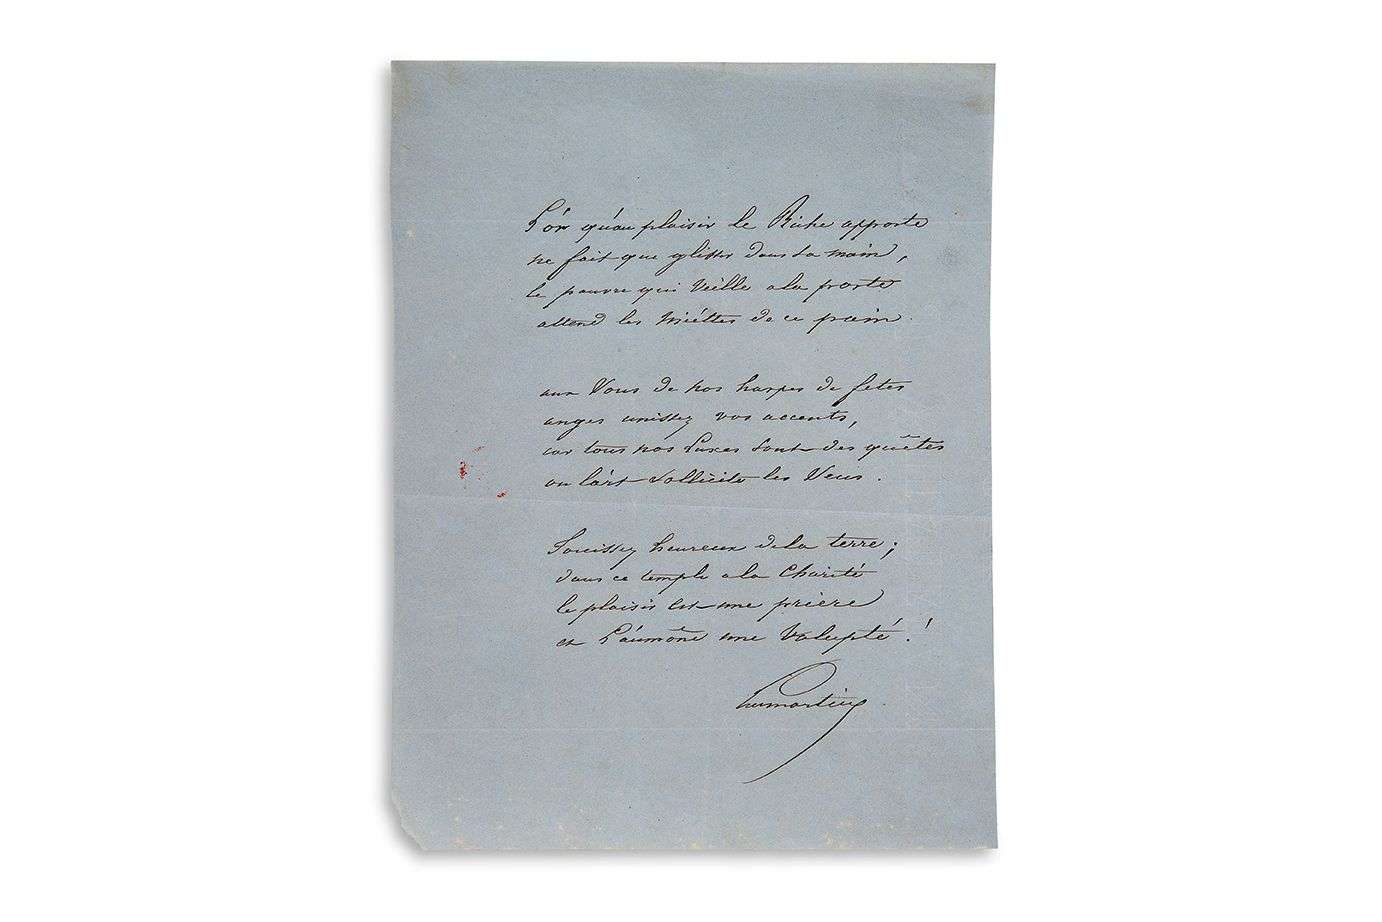 L'or qu'au plaisir le Riche apporte
ne fait que glisser dans sa main,
le pauvre qui veille a la porte
attend les miéttes de ce pain.
aux Sons de nos harpes de fetes
anges unissez vos accents,
car tous nos Luxes sont des quêtes
ou l'art sollicite les Sens.
Jouissez heureux de la terre;
dans ce temple a la Charité
le plaisir est une prière
et l'aumône une Volupté!
Lamartine